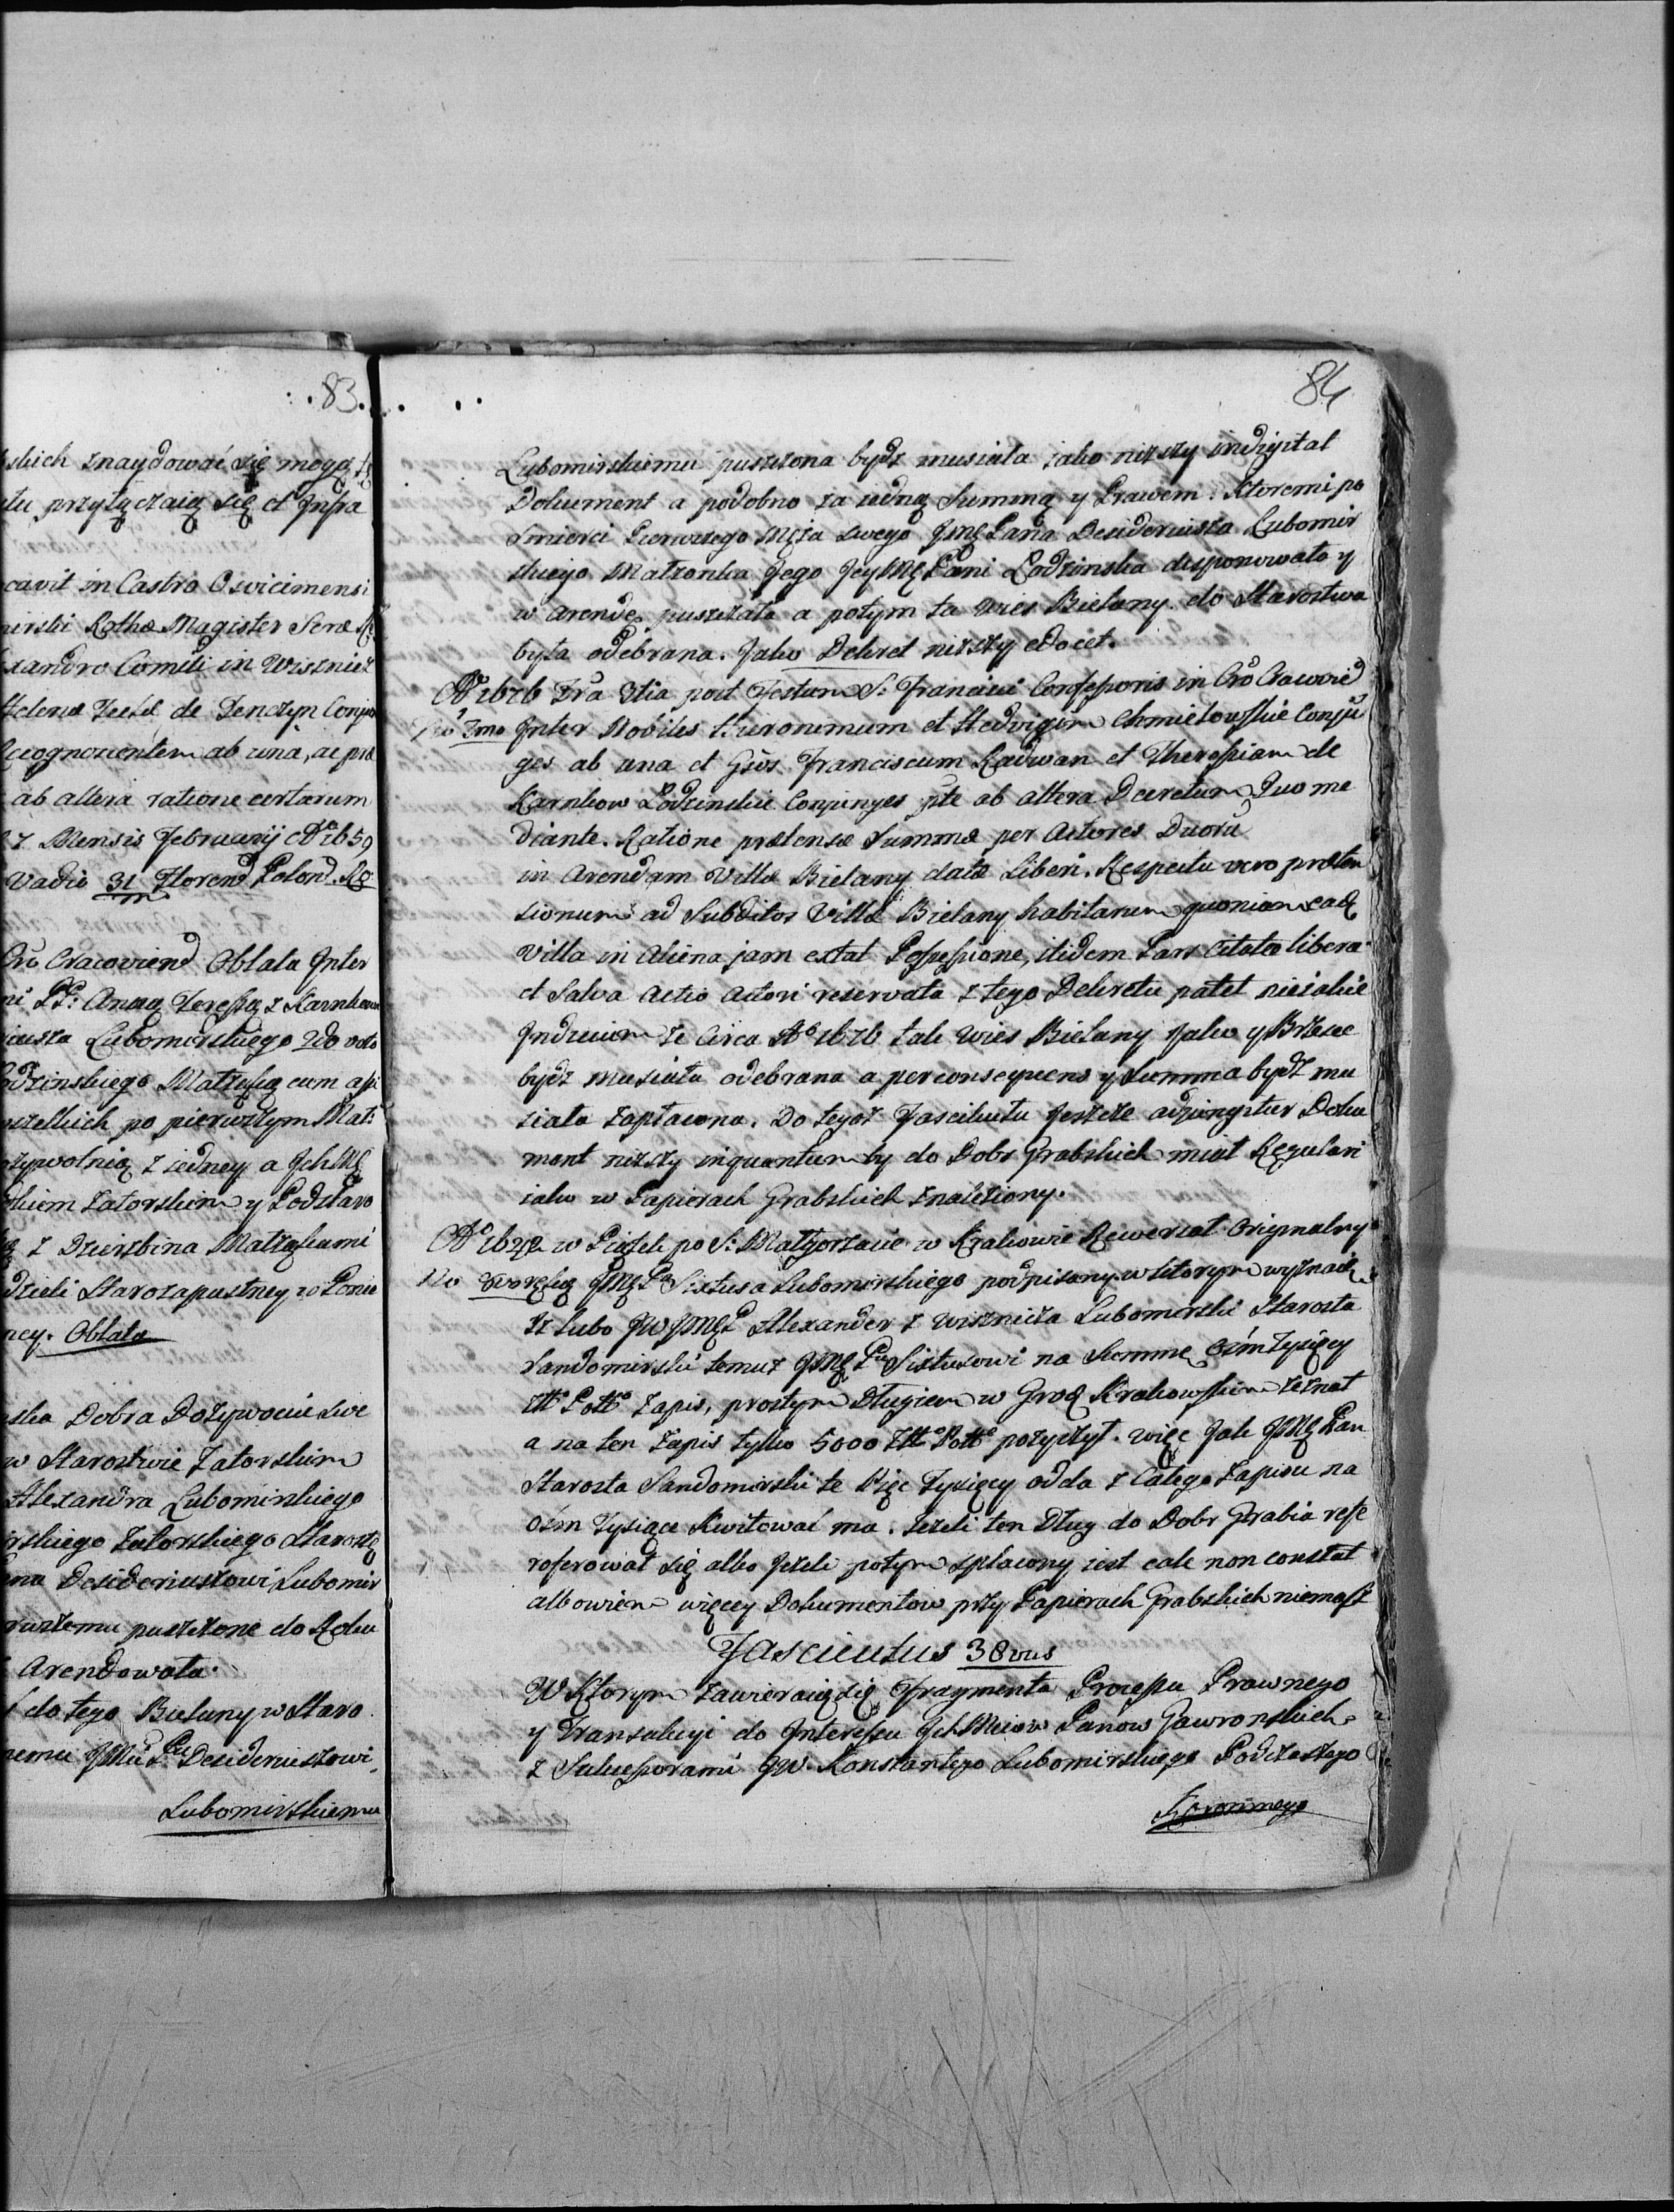 83.
skich znaydować się mogą
tu przyłączaią się et Infra
cavit in Castro Osvicimensi
mirski Rothae Magister Serae
xandro Comiti in Wisnicz
Helenae Teclae de Tenczyn
Recognoscentem ab una, ac
ab altera ratione certarum
7 Mensis Februarij Aº 1659
Vadio 31 Floreno Polono
Crô Cracoviend Oblata Inter
Anną Teressą z Karnkowa
iusza Lubomirskiego 2do voto
odzinskiego Małżęską cum
wszelkich po pierwszym
ożywotnią z iedney a
skiem Zatorskiem y Podstaro
z Dzierzbina Małżąskami
dzieli Starozapustney w Ponie
ney. Oblata
ska Dobra Dozywocie swe
w Starostwie Zatorskim
Alexandra Lubomirskiego
rskiego Zatorskiego Starostę
Desideriuszowi Lubomir
puszczone do Roku
Arendowała.
do tego Bielany w Staro
Desideriuszowi
Lubomirskiemu
84
Lubomirskiemu puszczona bydz musiała iako nizszy indigitat
Dokument a podobno za iedną Summą y Prawem. Ktoremi po
Smierci Pierwszego Męża swego JMę Pana Desideriusza Lubomir
skiego Małzonka Jego JeyMę Pani Łodzinska disponowała y
w arendę puszczała a potym ta wies Bielany do Starostwa
była odebrana. Jako Dekret nizszy edocet.
Aº 1676 Fra 3tia post Festum S: Francisci Confessoris in Crô Cracovie
Nô 3mo Inter Nobiles Hieronimum et Hedvigim Chmielowskie Conju
ges ab una et Gsôs Franciscum Radwan et Theressiam de
Karnkow Łodzinskie Conjunges pte ab altera Decretum, Quo me
diante. Ratione praetensae Summae per Actores Duorû
in Arendam Villae Bielany datae Liberi. Respectu vero praeten
sionum ad Subditos Villae Bielany habitarum quoniam eadę
Villa in Aliena jam extat Possessione, itidem Pars Citata libera
et Salva Actio Actori reservata z tego Dekretu patet nieiakie
Indicium ze Circa Aº 1676 tak wies Bielany jako y Brzescie
bydz musiała odebrana a per consequens y Summa bydz mu
siała zapłacona. Do tegoz Fascikułu jeszcze adjungitur Doku
ment nizszy inquantum by do Dobr Grabskich miał Regulari
iako w Papierach Grabskich znaleziony.
w Piątek po S: Małgorzacie w Krakowie Rewersał Originalny
No 4to ręką JMę Pa Sixtusa Lubomirskiego podpisany w ktorym wyznacz
Iz lubo JWJMęP Alexander z Wisznicza Lubomirski Starosta
Sandomirski temuz JMę Pu Sixtusowi na Summę Ośm Tysięcy
Złł Polł Zapis, prostym Długiem w Groę Krakowskim zeznał
a na ten Zapis tylko 5000 Złł Polł pozyczył. więc Jak JMę Pan
Starosta Sandomirski te Pięc Tysięcy odda z Całego Zapisu na
Ośm Tysiące Kwitować ma. Jezeli ten Dług do Dobr Grabia refe
roferował się albo Jezeli potym spłacony iest cale non constat
albowiem więcey Dokumentow przy Papierach Grabskich niemasz
Fasciculus 38vus
W Ktorym zawieraią się Fragmenta Processu Prawnego
y Transakcyi do Interessu JchMciow Panow Gawronskich
z Sukcessorami JW. Konstantego Lubomirskiego Podczaszego
Koronnego